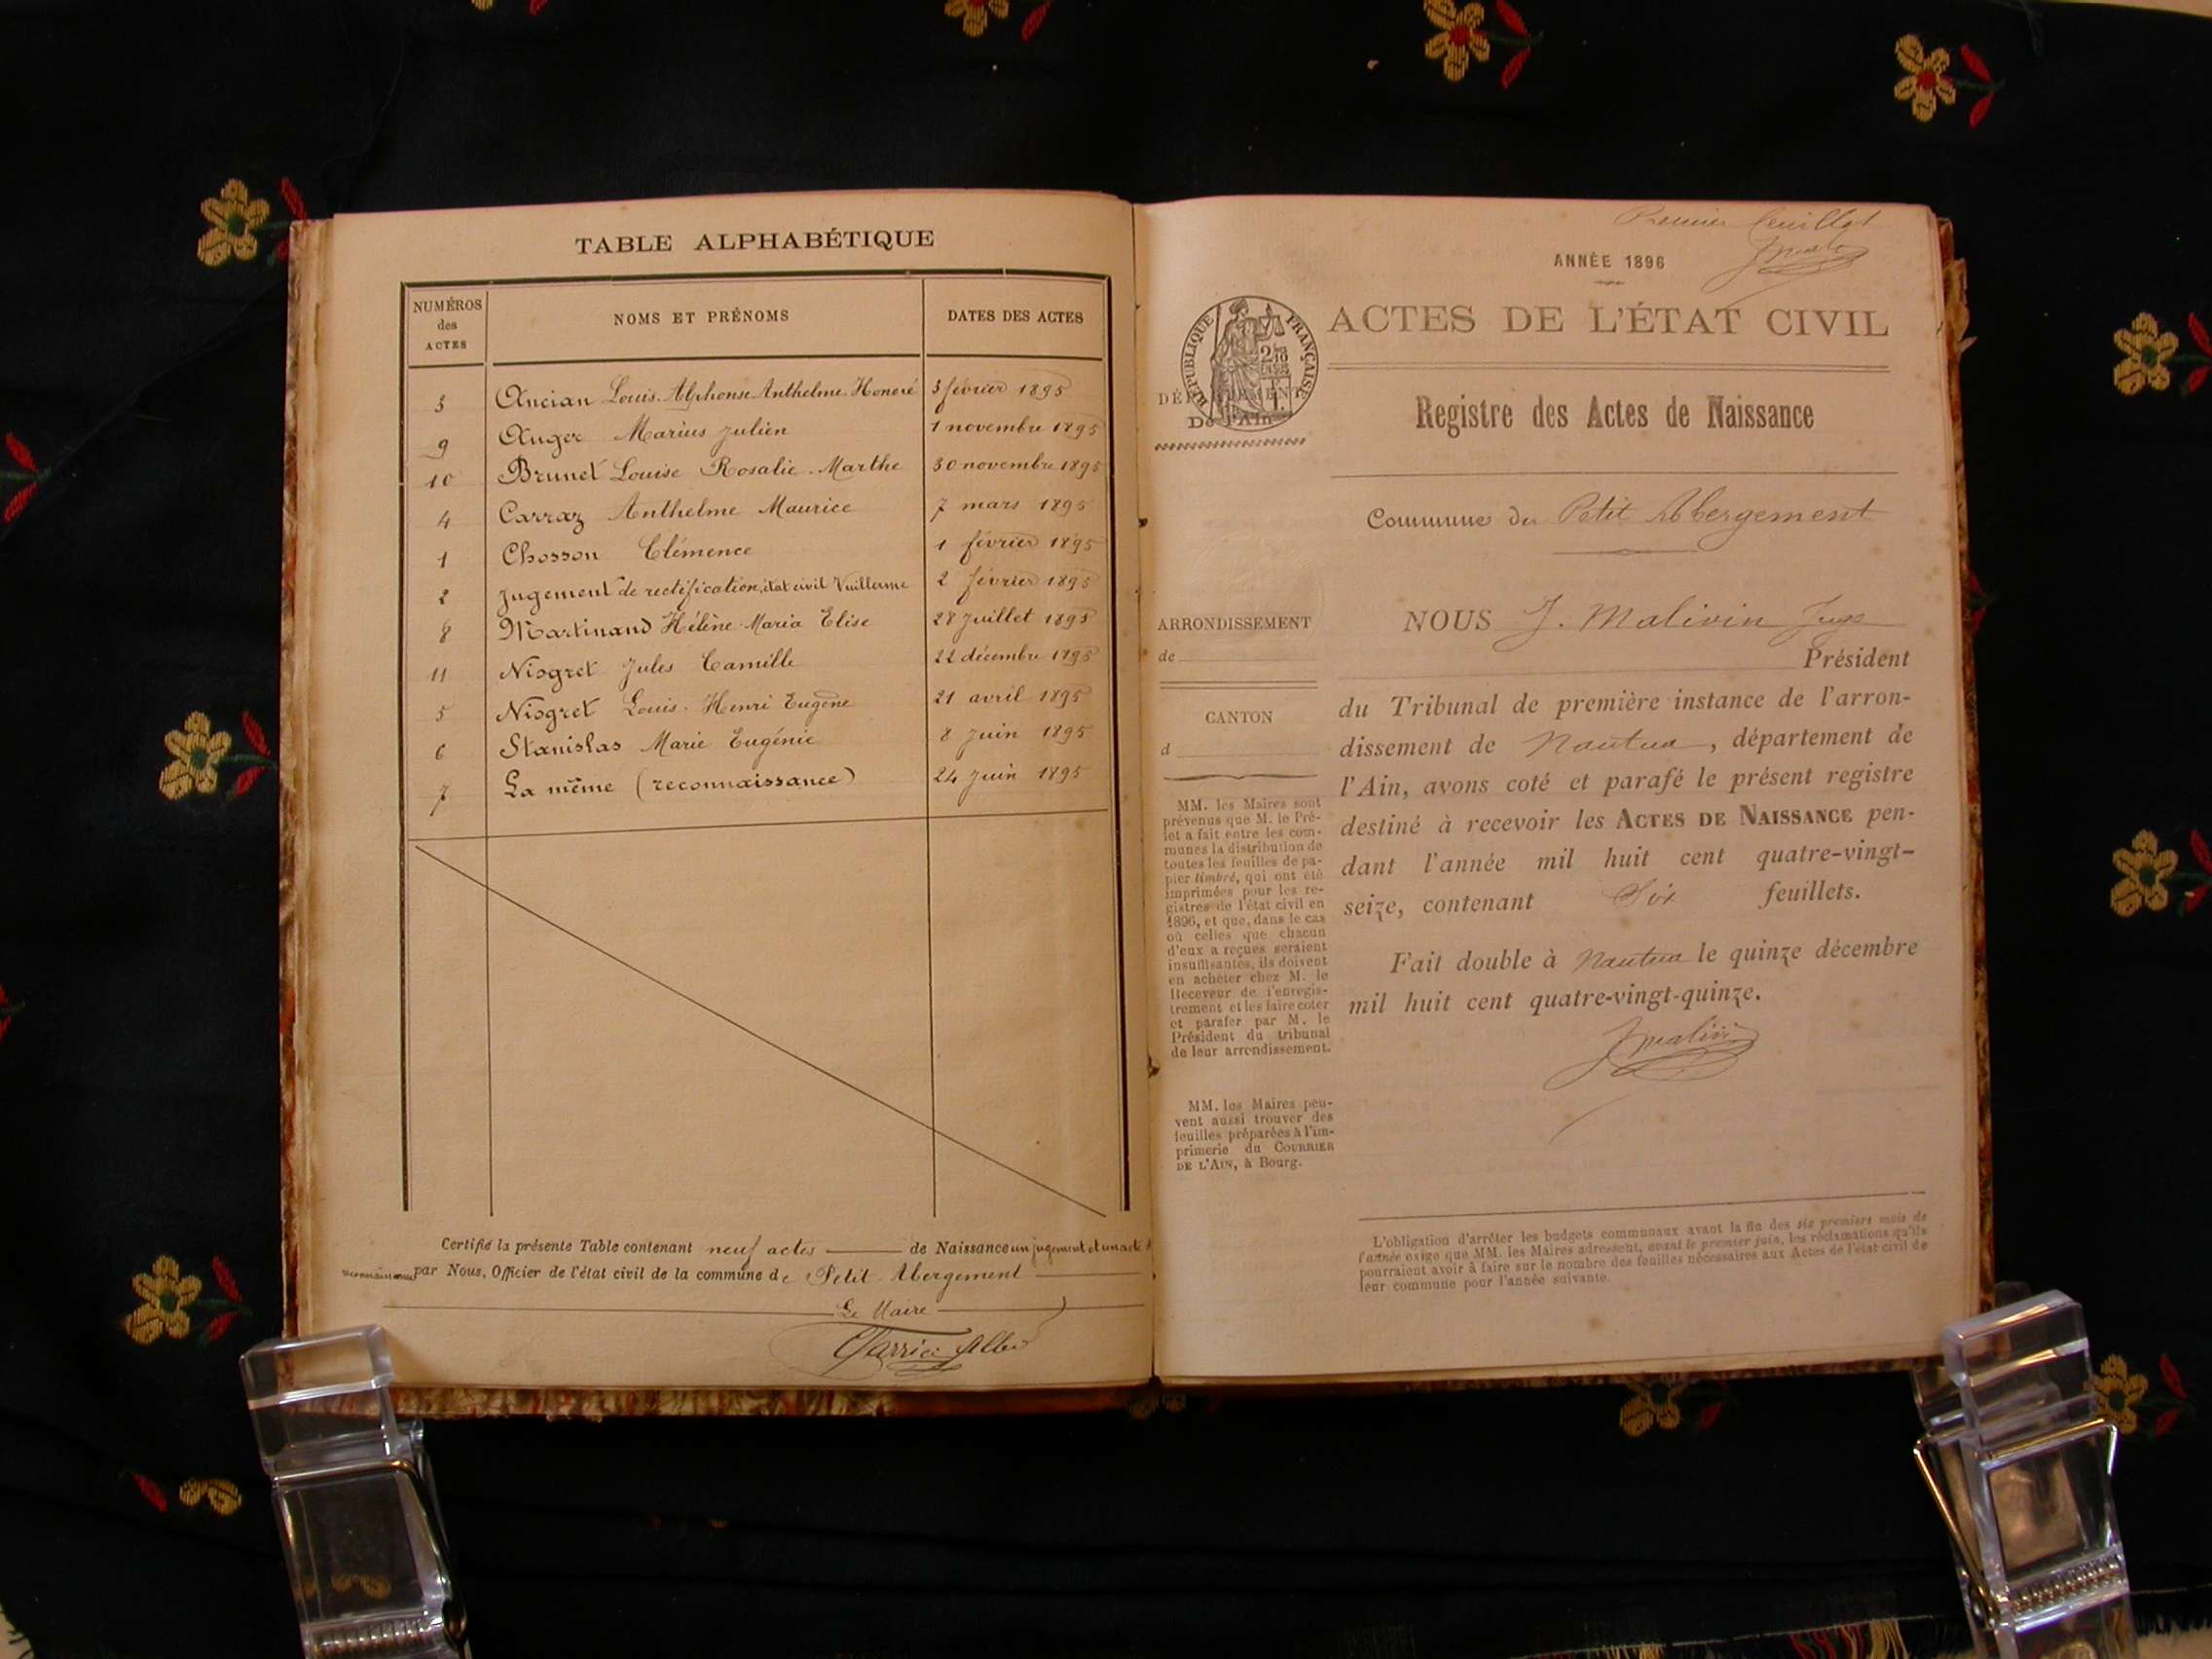 TABLE ALPHABÉTIQUE
NUMÉROS des ACTES NOMS ET PRÉNOMS DATES DES ACTES
3 Ancian Louis Alphonse Anthelme Honoré 3 février 1895
9 Auger Marius Julien 1 novembre 1895
10 Brunet Louise Rosalie Marthe 30 novembre 1895
4 Carraz Anthelme Maurice 7 mars 1895
1 Chosson Clémence 1 février 1895
2 Jugement de rectification, état civil Vuillerme 2 février 1895
8 Martinand Hélène Maria Elise 28 Juillet 1895
11 Niogret Jules Camille 22 décembre 1895
5 Niogret Louis Henri Eugène 21 avril 1895
6 Stanislas Marie Eugénie 8 Juin 1895
7 La même (reconnaissance) 24 Juin 1895
Certifié la présente Table contenant neuf actes de Naissance un jugement et un acte
reconnaissance par Nous, Officier de l'état civil de la commune de Petit Abergement
Le Maire
Premier feuillet
ANNÉE 1896
RÉPUBLIQUE FRANÇAISE
ACTES DE L'ÉTAT CIVIL
DÉPARTEMENT
De l'Ain
Registre des Actes de Naissance
Commune du Petit Abergement
ARRONDISSEMENT
de
CANTON
d
MM. les Maires sont
prévenus que M. le Pré-
fet a fait entre les com-
munes la distribution de
toutes les feuilles de pa-
pier timbré, qui ont été
imprimées pour les re-
gistres de l'état civil en
1896, et que, dans le cas
où celles que chacun
d'eux a reçues seraient
insuffisantes, ils doivent
en acheter chez M. le
Receveur de l'enregis-
trement et les faire coter
et parafer par M. le
Président du tribunal
de leur arrondissement.
MM. les Maires peu-
vent aussi trouver des
feuilles préparées à l'im-
primerie du COURRIER
DE L'AIN, à Bourg.
NOUS J. Malivin Juge
Président
du Tribunal de première instance de l'arron-
dissement de Nantua, département de
l'Ain, avons coté et parafé le présent registre
destiné à recevoir les ACTES DE NAISSANCE pen-
dant l'année mil huit cent quatre-vingt-
seize, contenant Six feuillets.
Fait double à Nantua le quinze décembre
mil huit cent quatre-vingt-quinze.
JMalivin
L'obligation d'arrêter les budgets communaux avant la fin des six premiers mois de
l'année exige que MM. les Maires adressent, avant le premier juin, les réclamations qu'ils
pourraient avoir à faire sur le nombre des feuilles nécessaires aux Actes de l'état civil de
leur commune pour l'année suivante.